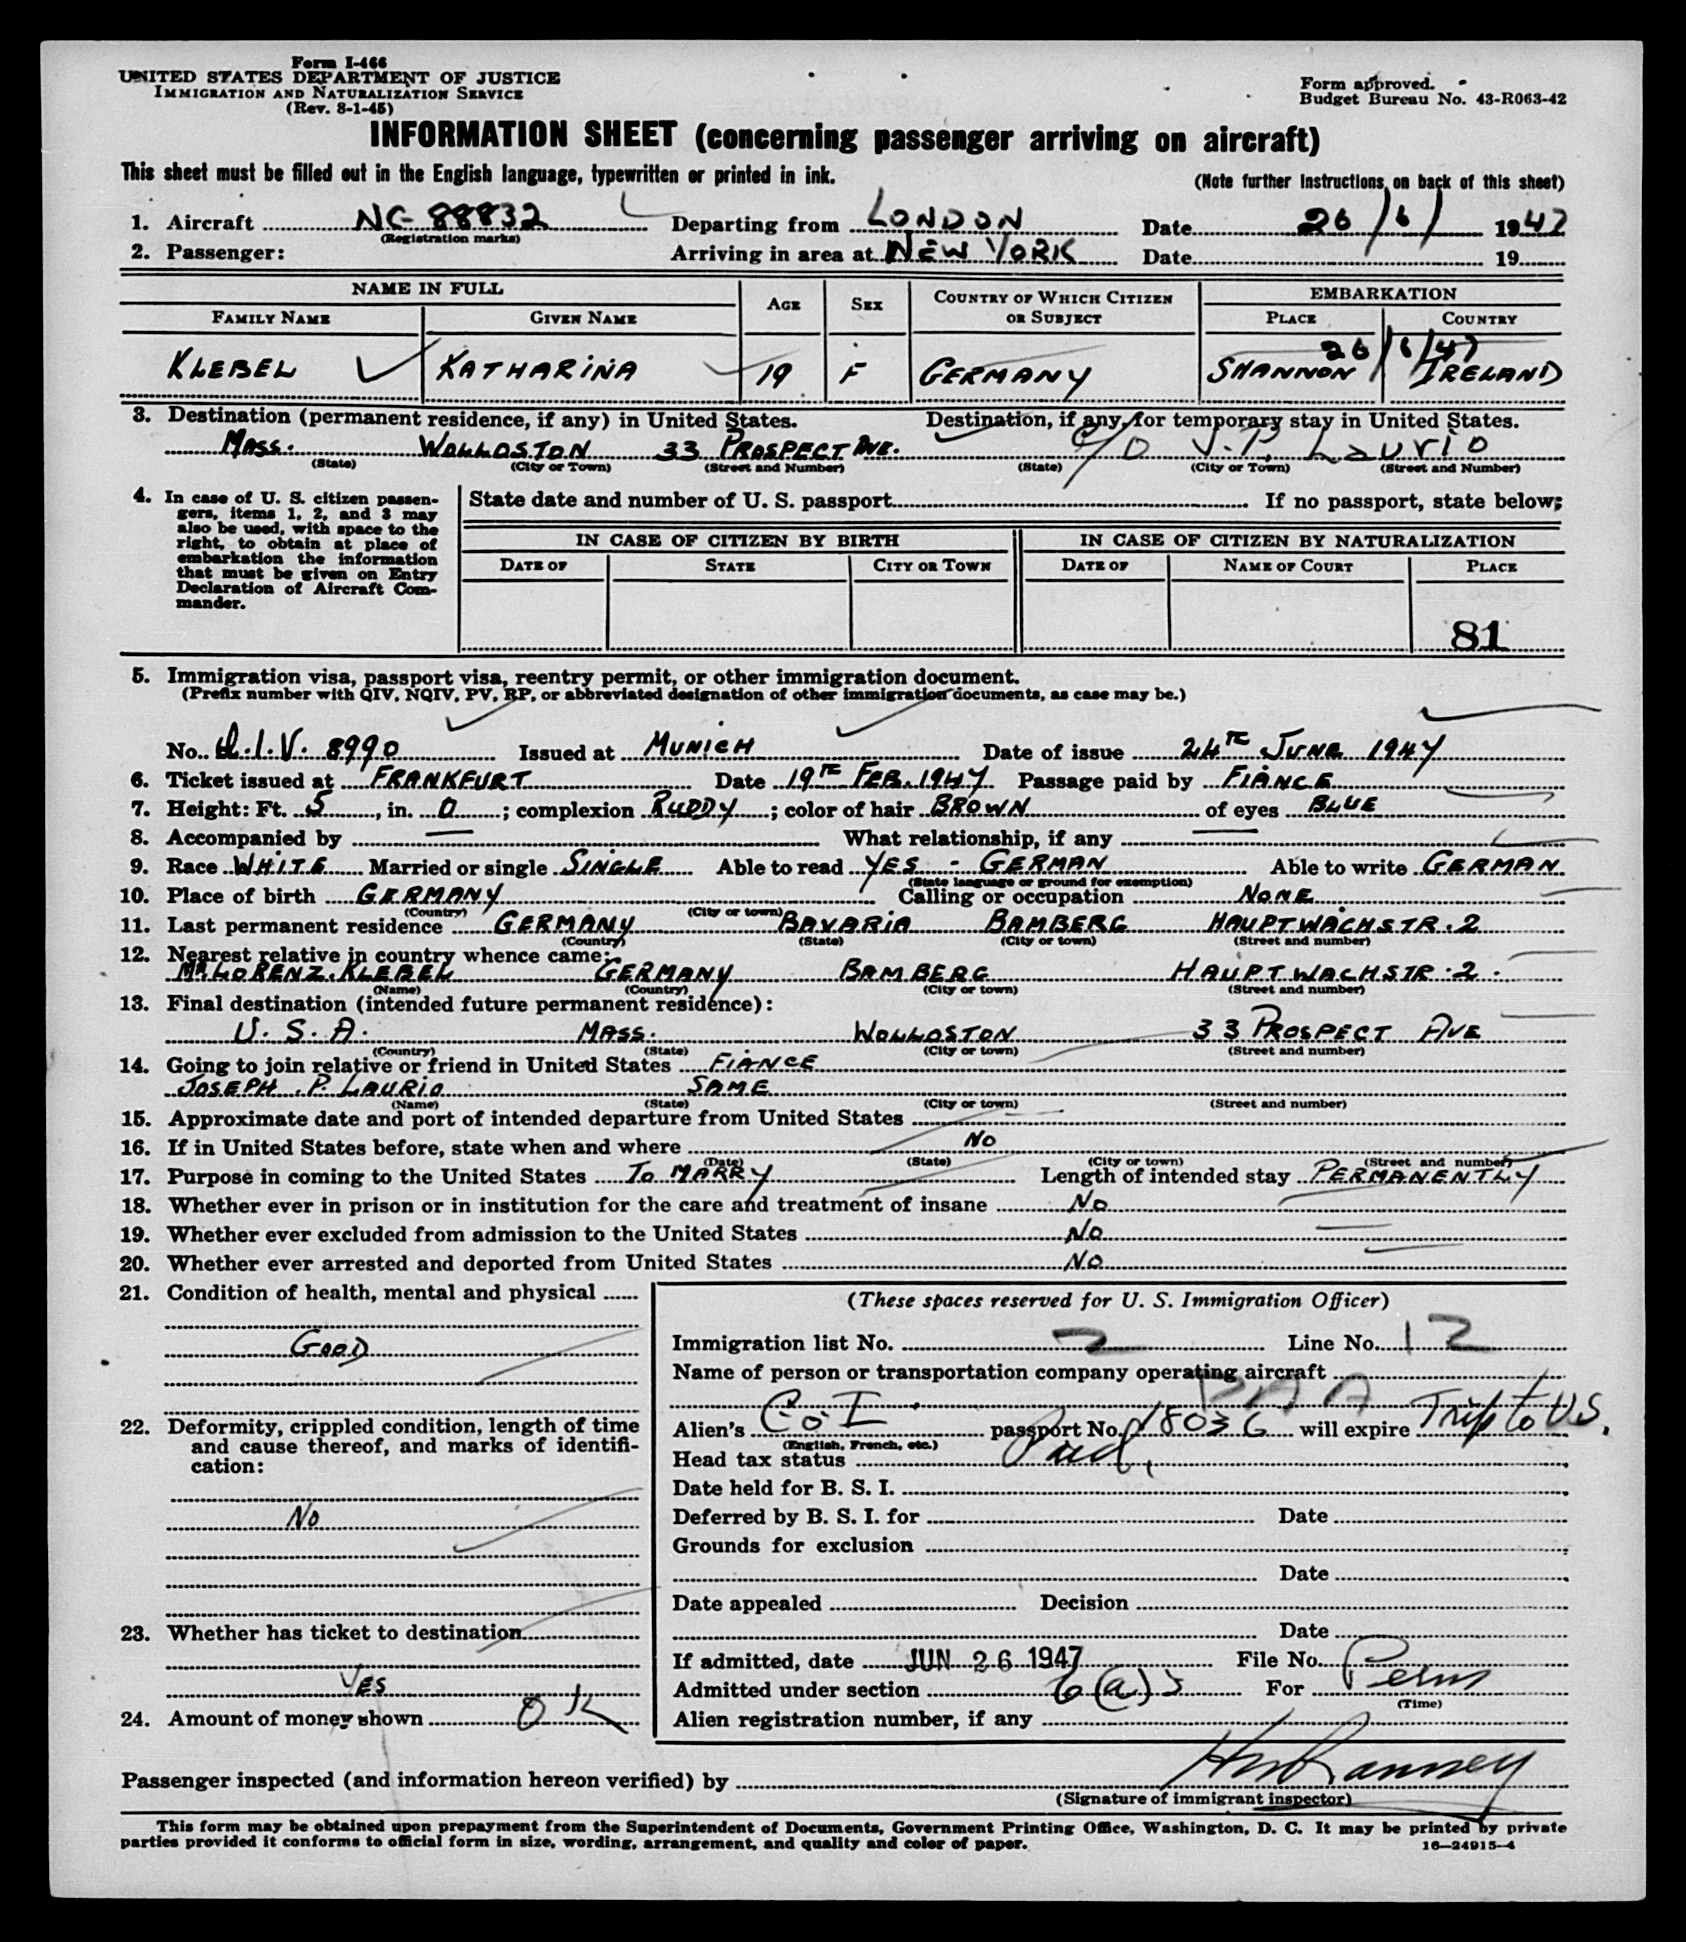 Form I-466
UNITED STATES DEPARTMENT OF JUSTICE
IMMIGRATION AND NATURALIZATION SERVICE
(Rev. 8-1-45)
Form approved.
Budget Bureau No. 43-R063-42
INFORMATION SHEET (concerning passenger arriving on aircraft)
This sheet must be filled out in the English language, typewritten or printed in ink.
(Note further instructions on back of this sheet)
1. Aircraft NC 88832 Departing from LONDON Date 26/6/ 1947
(Registration marks)
2. Passenger: Arriving in area at NEW YORK Date 19
NAME IN FULL AGE SEX COUNTRY OF WHICH CITIZEN OR SUBJECT EMBARKATION
FAMILY NAME GIVEN NAME PLACE COUNTRY
26/6/47
KLEBEL KATHARINA 19 F GERMANY SHANNON IRELAND
3. Destination (permanent residence, if any) in United States. Destination, if any, for temporary stay in United States.
MASS. WOLLOSTON 33 PROSPECT AVE. c/o J.P. Laurio
(State) (City or Town) (Street and Number) (State) (City or Town) (Street and Number)
4. In case of U. S. citizen passengers, items 1, 2, and 3 may also be used, with space to the right, to obtain at place of embarkation the information that must be given on Entry Declaration of Aircraft Commander.
State date and number of U. S. passport If no passport, state below:
IN CASE OF CITIZEN BY BIRTH IN CASE OF CITIZEN BY NATURALIZATION
DATE OF STATE CITY OR TOWN DATE OF NAME OF COURT PLACE
81
5. Immigration visa, passport visa, reentry permit, or other immigration document.
(Prefix number with QIV, NQIV, PV, RP, or abbreviated designation of other immigration documents, as case may be.)
No. Q.I.V. 8990 Issued at MUNICH Date of issue 24TH JUNE 1947
6. Ticket issued at FRANKFURT Date 19TH FEB. 1947 Passage paid by FIANCE
7. Height: Ft. 5, in. 0; complexion RUDDY; color of hair BROWN of eyes BLUE
8. Accompanied by — What relationship, if any —
9. Race WHITE Married or single SINGLE Able to read YES - GERMAN Able to write GERMAN
(State language or ground for exemption)
10. Place of birth GERMANY Calling or occupation NONE
(Country) (City or town)
11. Last permanent residence GERMANY BAVARIA BAMBERG HAUPTWACHSTR. 2
(Country) (State) (City or town) (Street and number)
12. Nearest relative in country whence came:
MR LORENZ KLEBEL GERMANY BAMBERG HAUPTWACHSTR. 2.
(Name) (Country) (City or town) (Street and number)
13. Final destination (intended future permanent residence):
U. S. A. MASS. WOLLOSTON 33 PROSPECT AVE
(Country) (State) (City or town) (Street and number)
14. Going to join relative or friend in United States FIANCE
JOSEPH P. LAURIO SAME
(Name) (State) (City or town) (Street and number)
15. Approximate date and port of intended departure from United States —
16. If in United States before, state when and where NO
(Date) (State) (City or town) (Street and number)
17. Purpose in coming to the United States TO MARRY Length of intended stay PERMANENTLY
18. Whether ever in prison or in institution for the care and treatment of insane NO
19. Whether ever excluded from admission to the United States NO
20. Whether ever arrested and deported from United States NO
21. Condition of health, mental and physical
GOOD
22. Deformity, crippled condition, length of time and cause thereof, and marks of identification:
NO
23. Whether has ticket to destination
YES
24. Amount of money shown OK
(These spaces reserved for U. S. Immigration Officer)
Immigration list No. 2 Line No. 12
Name of person or transportation company operating aircraft
PAA
Alien's C of I. passport No. 18036 will expire Trip to US.
(English, French, etc.)
Head tax status Paid.
Date held for B. S. I.
Deferred by B. S. I. for Date
Grounds for exclusion
Date
Date appealed Decision
Date
If admitted, date JUN 26 1947 File No.
Admitted under section 6(a)3 For Perm
(Time)
Alien registration number, if any
Passenger inspected (and information hereon verified) by
(Signature of immigrant inspector)
This form may be obtained upon prepayment from the Superintendent of Documents, Government Printing Office, Washington, D. C. It may be printed by private
parties provided it conforms to official form in size, wording, arrangement, and quality and color of paper.
16—24915-4